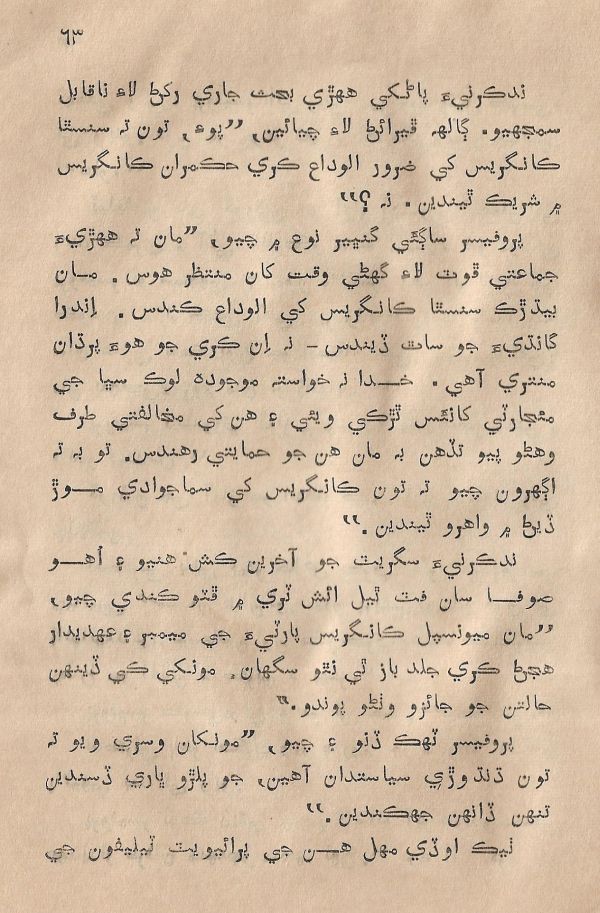 ٦٣
نڊڪرنيءَ پاڻکي ههڙي بحث جاري رکڻ لاءِ ناقابل
سمجهيو. ڳالهه ڦيرائڻ لاءِ چيائين, ”پوءِ, تون تہ سنسٿا
ڪانگريس کي ضرور الوداع ڪري حڪمران ڪانگريس
۾ شريڪ ٿيندين. نہ ؟“
پروفيسر ساڳئي گنڀير نوع ۾ چيو, ”مان تہ ههڙيءَ
جماعتي ڦوٽ لاءِ گهڻي وقت کان منتظر هوس. مان
بيڌڙڪ سنسٿا ڪانگريس کي الوداع ڪندس. اِندرا
گانڌيءَ جو ساٿ ڏيندس – نہ اِن ڪري جو هوءَ پرڌان
منتري آهي. خدا نہ خواستہ موجوده لوڪ سڀا جي
مئجارٽي کانئس ٽڙڪي ويئي ۽ هن کي مخالفتي طرف
وهڻو پيو تڏهن بہ مان هن جو حمايتي رهندس. تو بہ تہ
اڳهرون چيو تہ تون ڪانگريس کي سماجوادي موڙ
ڏيڻ ۾ واهرو ٿيندين.“
نڊڪرنيءَ سگريٽ جو آخرين ڪش هنيو ۽ اُهو
صوفا سان فٽ ٿيل ائش ٽري ۾ ڦٽو ڪندي چيو,
”مان ميونسپل ڪانگريس پارٽيءَ جي ميمبر ۽ عهديدار
هجڻ ڪري جلد باز ٿي نٿو سگهان. مونکي ڪي ڏينهن
حالتن جو جائزو وٺڻو پوندو.“
پروفيسر ٽهڪ ڏنو ۽ چيو, ”مونکان وسري ويو تہ
تون ڌنڌوڙي سياستدان آهين, جو پلڙو ڀاري ڏسندين
تنهن ڏانهن جهڪندين.“
ٺيڪ اوڏي مهل هن جي پرائيويٽ ٽيليفون جي